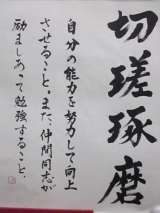 切瑳琢磨
自分の能力を努力して向上
させること。また、仲間同志が
励ましあって勉強すること。